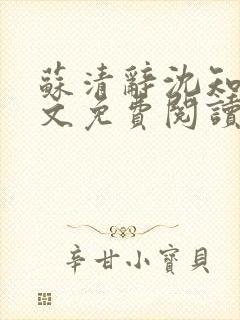 蘇清辭沈知
文免費閱讀
辛甘小寶貝